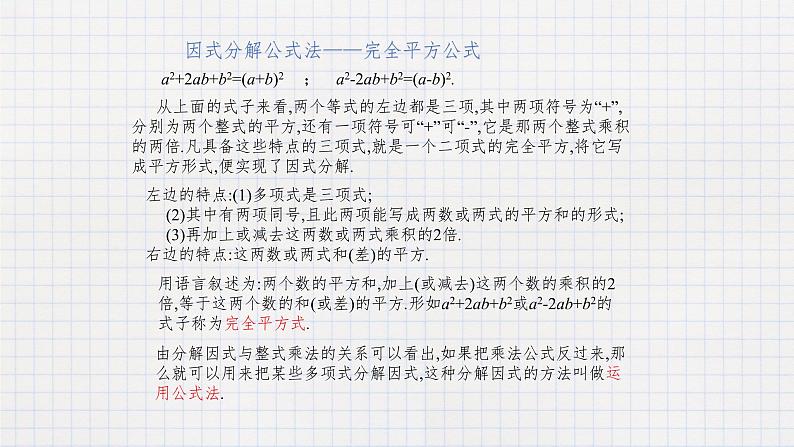 因式分解公式法——完全平方公式
a²+2ab+b²=(a+b)² ； a²-2ab+b²=(a-b)².
从上面的式子来看,两个等式的左边都是三项,其中两项符号为“+”,
分别为两个整式的平方,还有一项符号可“+”可“-”,它是那两个整式乘积
的两倍.凡具备这些特点的三项式,就是一个二项式的完全平方,将它写
成平方形式,便实现了因式分解.
左边的特点:(1)多项式是三项式;
(2)其中有两项同号,且此两项能写成两数或两式的平方和的形式;
(3)再加上或减去这两数或两式乘积的2倍.
右边的特点:这两数或两式和(差)的平方.
用语言叙述为:两个数的平方和,加上(或减去)这两个数的乘积的2
倍,等于这两个数的和(或差)的平方.形如a²+2ab+b²或a²-2ab+b²的
式子称为完全平方式.
由分解因式与整式乘法的关系可以看出,如果把乘法公式反过来,那
么就可以用来把某些多项式分解因式,这种分解因式的方法叫做运
用公式法.